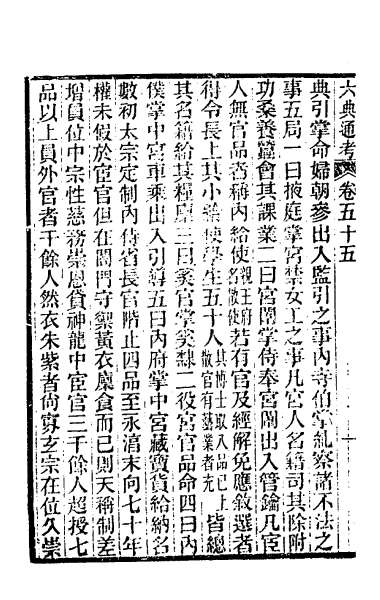 六典通考 卷五十五
典引掌命婦朝參出入監引之事內寺伯掌糺察諸不法之
事五局一曰掖庭掌宮禁女工之事凡宮人名籍司其除附
功桑養蠶會其課業二曰宮闈掌侍奉宮闈出入管鑰凡宦
人無官品者稱內給使親王府名散使若有官及經解免應敘選者
得令長上其小給使學生五十人其博士取八品已上散官有藝業者充皆總
其名籍給其糧廩三曰奚官掌奚隸工役宮官品命四曰內
僕掌中宮車乘出入引導五曰內府掌中宮藏寶貨給納名
數初太宗定制內侍省長官階止四品至永湻末向七十年
權未假於宦官但在閤門守禦黃衣廩食而已則天稱制差
增員位中宗性慈務崇恩貸神龍中宦官三千餘人超授七
品以上員外官者千餘人然衣朱紫者尙寡玄宗在位久崇